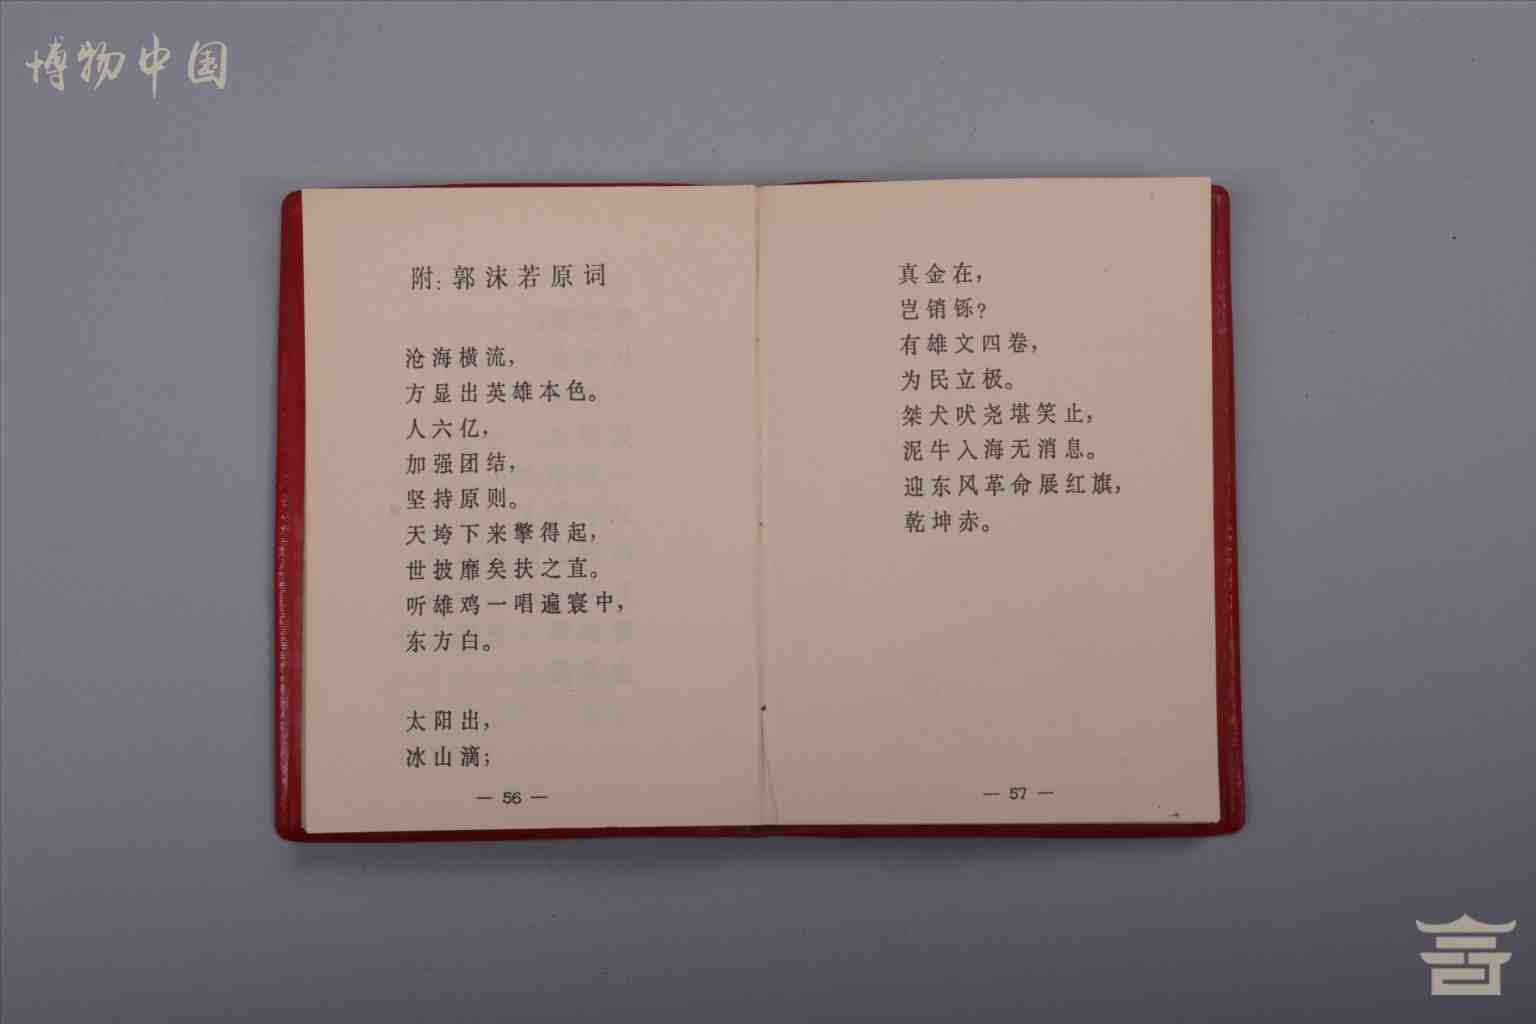 博物中国
附：郭沫若原词
沧海横流，
方显出英雄本色。
人六亿，
加强团结，
坚持原则。
天垮下来擎得起，
世披靡矣扶之直。
听雄鸡一唱遍寰中，
东方白。
太阳出，
冰山滴；
— 56 —
真金在，
岂销铄？
有雄文四卷，
为民立极。
桀犬吠尧堪笑止，
泥牛入海无消息。
迎东风革命展红旗，
乾坤赤。
— 57 —